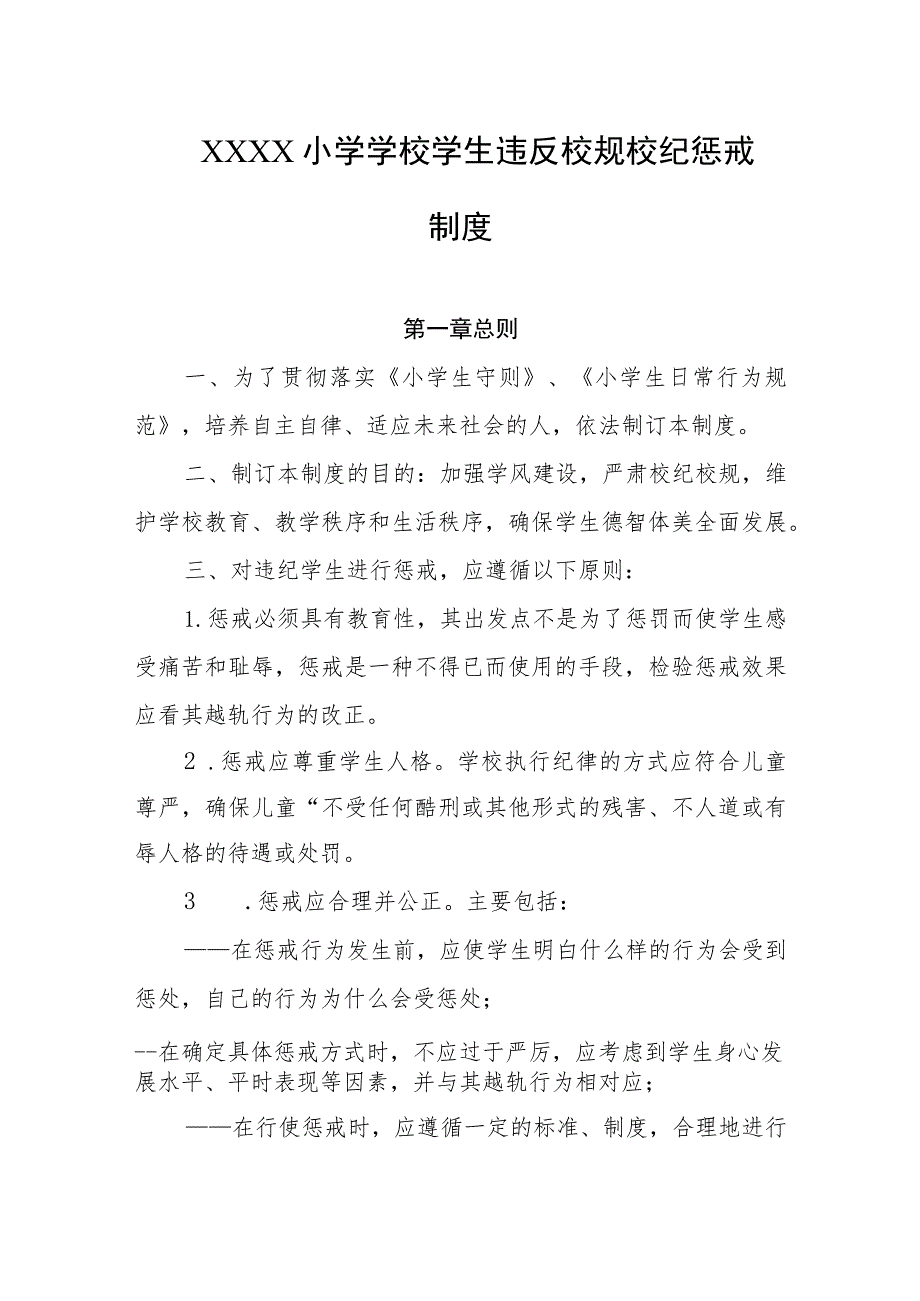 XXXX 小学学校学生违反校规校纪惩戒
制度
第一章总则
一、为了贯彻落实《小学生守则》、《小学生日常行为规
范》，培养自主自律、适应未来社会的人，依法制订本制度。
二、制订本制度的目的：加强学风建设，严肃校纪校规，维
护学校教育、教学秩序和生活秩序，确保学生德智体美全面发展。
三、对违纪学生进行惩戒，应遵循以下原则：
1.惩戒必须具有教育性，其出发点不是为了惩罚而使学生感
受痛苦和耻辱，惩戒是一种不得已而使用的手段，检验惩戒效果
应看其越轨行为的改正。
2 .惩戒应尊重学生人格。学校执行纪律的方式应符合儿童
尊严，确保儿童“不受任何酷刑或其他形式的残害、不人道或有
辱人格的待遇或处罚。
3 .惩戒应合理并公正。主要包括：
——在惩戒行为发生前，应使学生明白什么样的行为会受到
惩处，自己的行为为什么会受惩处；
--在确定具体惩戒方式时，不应过于严厉，应考虑到学生身心发
展水平、平时表现等因素，并与其越轨行为相对应；
——在行使惩戒时，应遵循一定的标准、制度，合理地进行